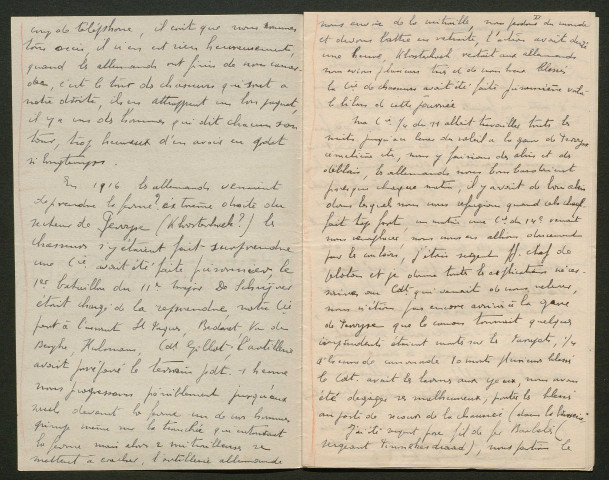 coup de téléphone, il croit que nous sommes
tous occis, il n'en est rien heureusement,
quand les allemands ont fini de nous canar-
der, c'est le tour des chasseurs qui sont à
notre droite, ils en attrappent un bon paquet,
il y a un des hommes qui dit chacun son
tour, trop heureux d'en avoir
si longtemps.
En 1916 les allemands venaient
de prendre la ferme extrème droite du
secteur de Pervyse (Kloosterhoek?) les
chasseurs s'y étaient fait surprendre
une Cie avait été faite prisonnière, le
1er bataillon du 11e major De Schrijver
était chargé de la reprendre, notre Cie
part à l'assaut Lt
Cdt Gillot. L'artillerie
avait préparé le terrain pdt. 1 heure
nous progressons péniblement jusqu'aux
devant la ferme un de nos hommes
grimpe même sur la tranchée qui entourait
la ferme mais alors 2 mitrailleuses se
mettent à cracher, l'artillerie allemande
nous envoie de la mitraille, nous perdons du monde
et devons battre en retraite, l'action avait duré
une heure, Kloosterhoek restait aux allemands
nous avions plusieurs tués et de nombreux blessés
la Cie de chasseurs avait été faite prisonnière voilà
le bilan de cette journée
Ma Cie 1/4 du 11 allait travailler toutes les
nuits jusqu'au lever du soleil à la gare de Pervyse
cimetière etc, nous y faisions des abris et des
déblais, les allemands nous bombardaient
presque chaque nuit, il y avait de bons abris
dans lesquels nous nous réfugions quand cela chauf-
fait trop fort, un matin une Cie du 14e venait
nous remplacer nous nous en allions doucement
par le couloir, j'étais sergent ff. chef de
peloton et je donne toutes les explications néces-
saires au Cdt qui venait de nous relever,
nous n'étions pas encore arrivés à la gare
de Pervyse que le canon tonnait quelques
étaient morts sur le parapet, 1/4
d'heure de canonade 10 morts plusieurs blessés
le Cdt. avait les larmes aux yeux, nous avons
été dégager ces malheureux, porter les blessés
au poste de secours de la chaussée
J'ai été surpris par
sergent nous partions le